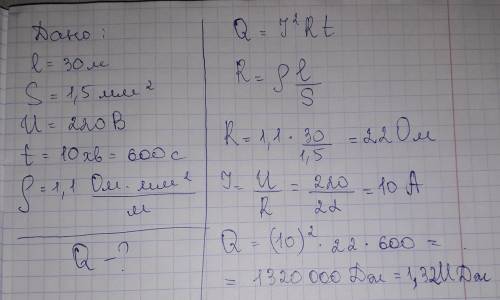 Дано:
l = 30 м
S = 1,5 мм²
U = 220 В
t = 10 хв = 600 с
ρ = 1,1 Ом · мм² / м
Q - ?
Q = I² R t
R = ρ l / S
R = 1,1 · 30 / 1,5 = 22 Ом
I = U / R = 220 / 22 = 10 А
Q = (10)² · 22 · 600 =
= 1320 000 Дж = 1,32 МДж